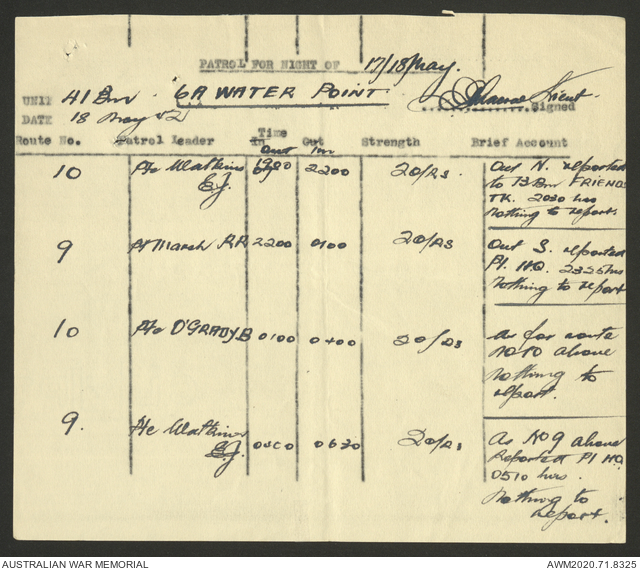 PATROL FOR NIGHT OF 17/18 May.
UNIT 41 Bn 6A WATER POINT
Signed
DATE 18 May 42
Route No. Patrol Leader Time In Out Strength Brief Account
Out In
10 Pte Watkins E.J. 2200 20/Rs Out N. reported
to 13 Bn FRIENDS
TK. 2030 hrs
nothing to report.
9 Pt Marsh RR 2200 0100 20/Rs Out S. reported
Pl. HQ. 2325 hrs
nothing to report
10 Pte O'GRADY B 0100 0400 20/Rs as for route
No 10 above
nothing to
report.
9. Pte Watkins E.J. 0400 0630 20/Rs as No 9 above
Reported Pl HQ
0510 hrs.
nothing to
report.
AUSTRALIAN WAR MEMORIAL AWM2020.71.8325